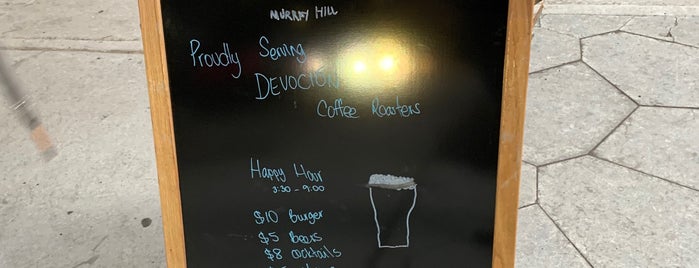 MURRAY HILL
Proudly Serving
DEVOCIÓN
Coffee Roasters
Happy Hour
3:30 - 9:00
$10 Burger
$5 Beers
$8 cocktails